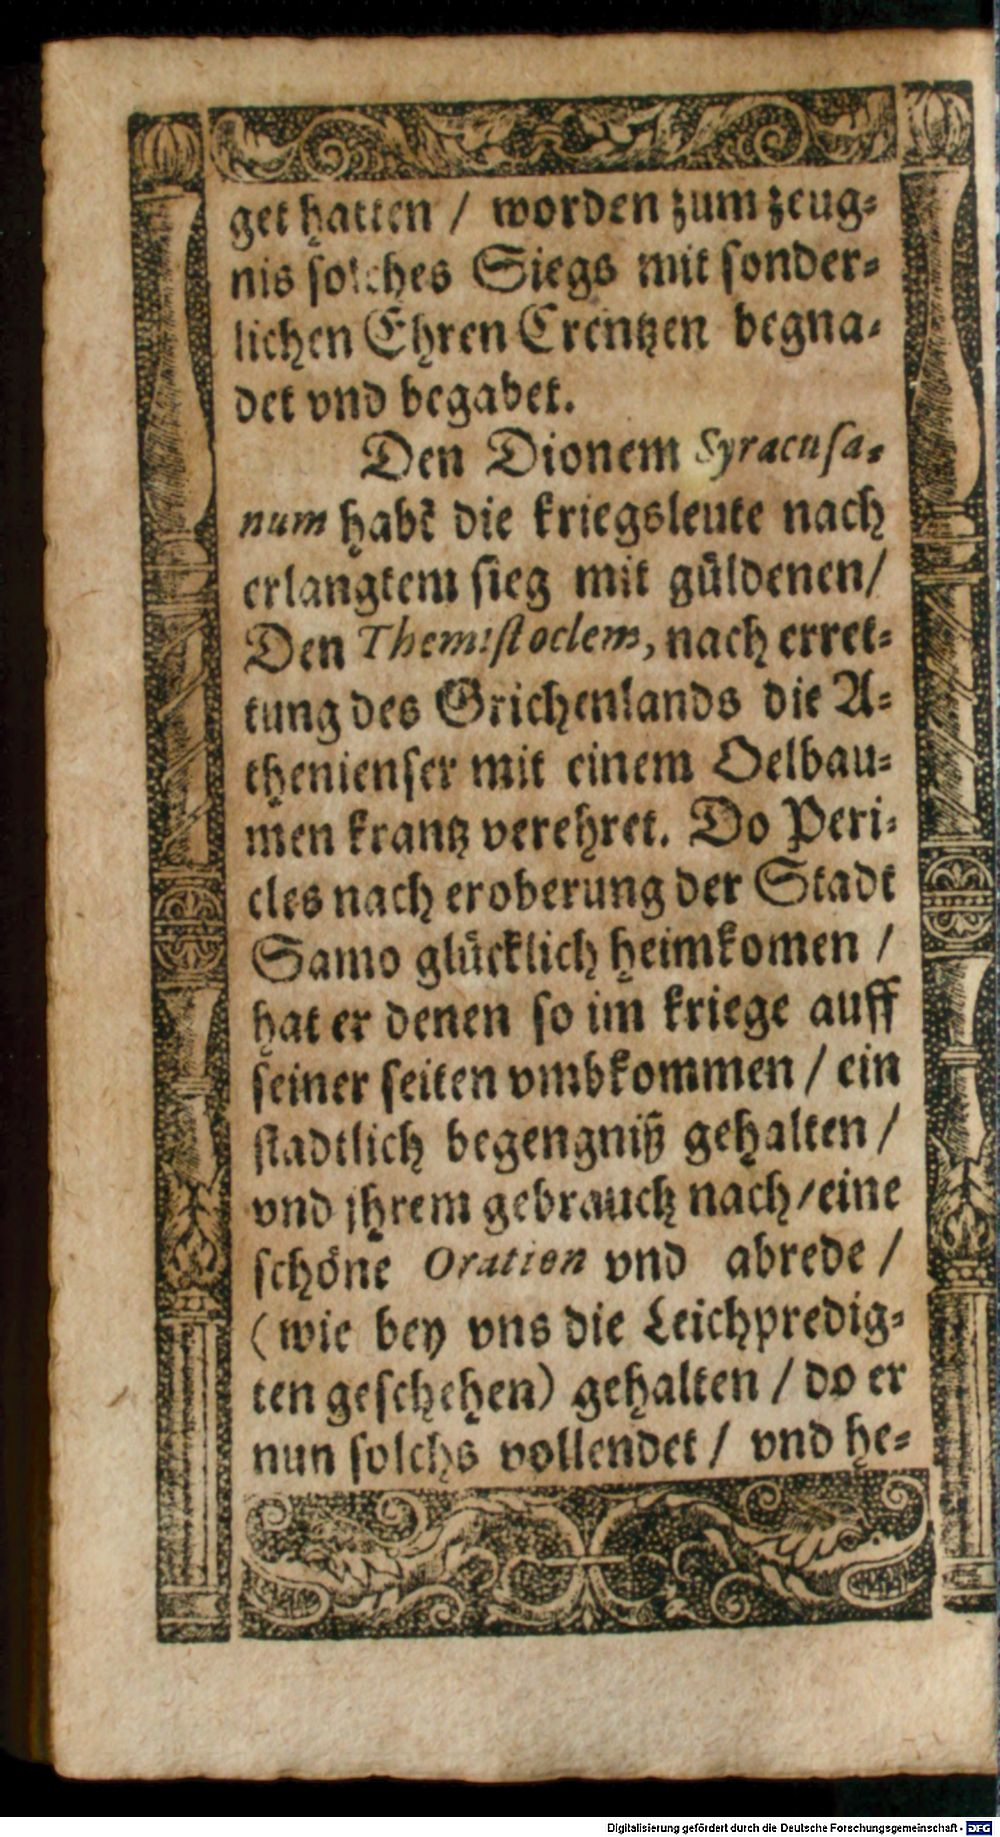 get hatten / worden zum zeug-
nis solches Siegs mit sonder-
lichen Ehren Crentzen begna-
det vnd begabet.
Den Dionem Syracusa-
num habẽ die kriegsleute nach
erlangtem sieg mit güldenen/
Den Themistoclem, nach erret-
tung des Grichenlands die A-
thenienser mit einem Oelbau-
men krantz verehret. Do Peri-
cles nach eroberung der Stadt
Samo glücklich heimkomen /
hat er denen so im kriege auff
seiner seiten vmbkommen / ein
stadtlich begengniß gehalten /
vnd jhrem gebrauch nach/eine
schöne Oration vnd abrede /
(wie bey vns die Leichpredig-
ten geschehen) gehalten / do er
nun solchs vollendet / vnd he-
Digitalisierung gefördert durch die Deutsche Forschungsgemeinschaft - DFG